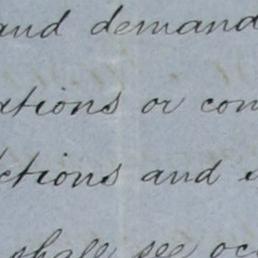 and demand
ations or con
ctions and
shall see occ